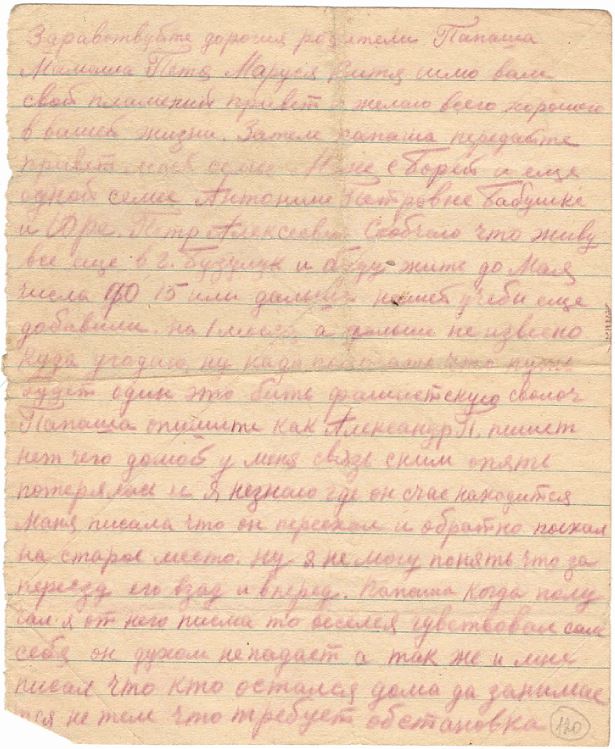 Здравствуйте дорогия родители Папаша
Мамаша Петя Маруся Витя шлю вам
свой пламений привет и желаю всего хорошего
в вашей жизни. Затем папаша передайте
привет моей семье Мане с Борей и еще
одной семье Антонине Петровне Бабушке
и Юре. Петр Алексеевич Сообчаю что живу
все еще в г. Бузулук и буду жить до Мая
числа до 15 или дальше нашей учебы еще
добавили на 1 месяц а дальше не извесно
куда угодаю, ну када что путь
будет один это бить фашистскую сволоч
Папаша опишите как Александр П. пишет
нет чего домой у меня связь с ним опять
потерялась и я незнаю где он счас находится
Маня писала что он переехал и обратно поехал
на старое место. Ну я не могу понять что за
переезд его взад и вперед. Папаша когда полу
чал я от него писма то веселея чувствовал сам
себя он духом непадает а так же и мне
писал что кто остался дома да занимае
тся не тем что требует обстановка
120